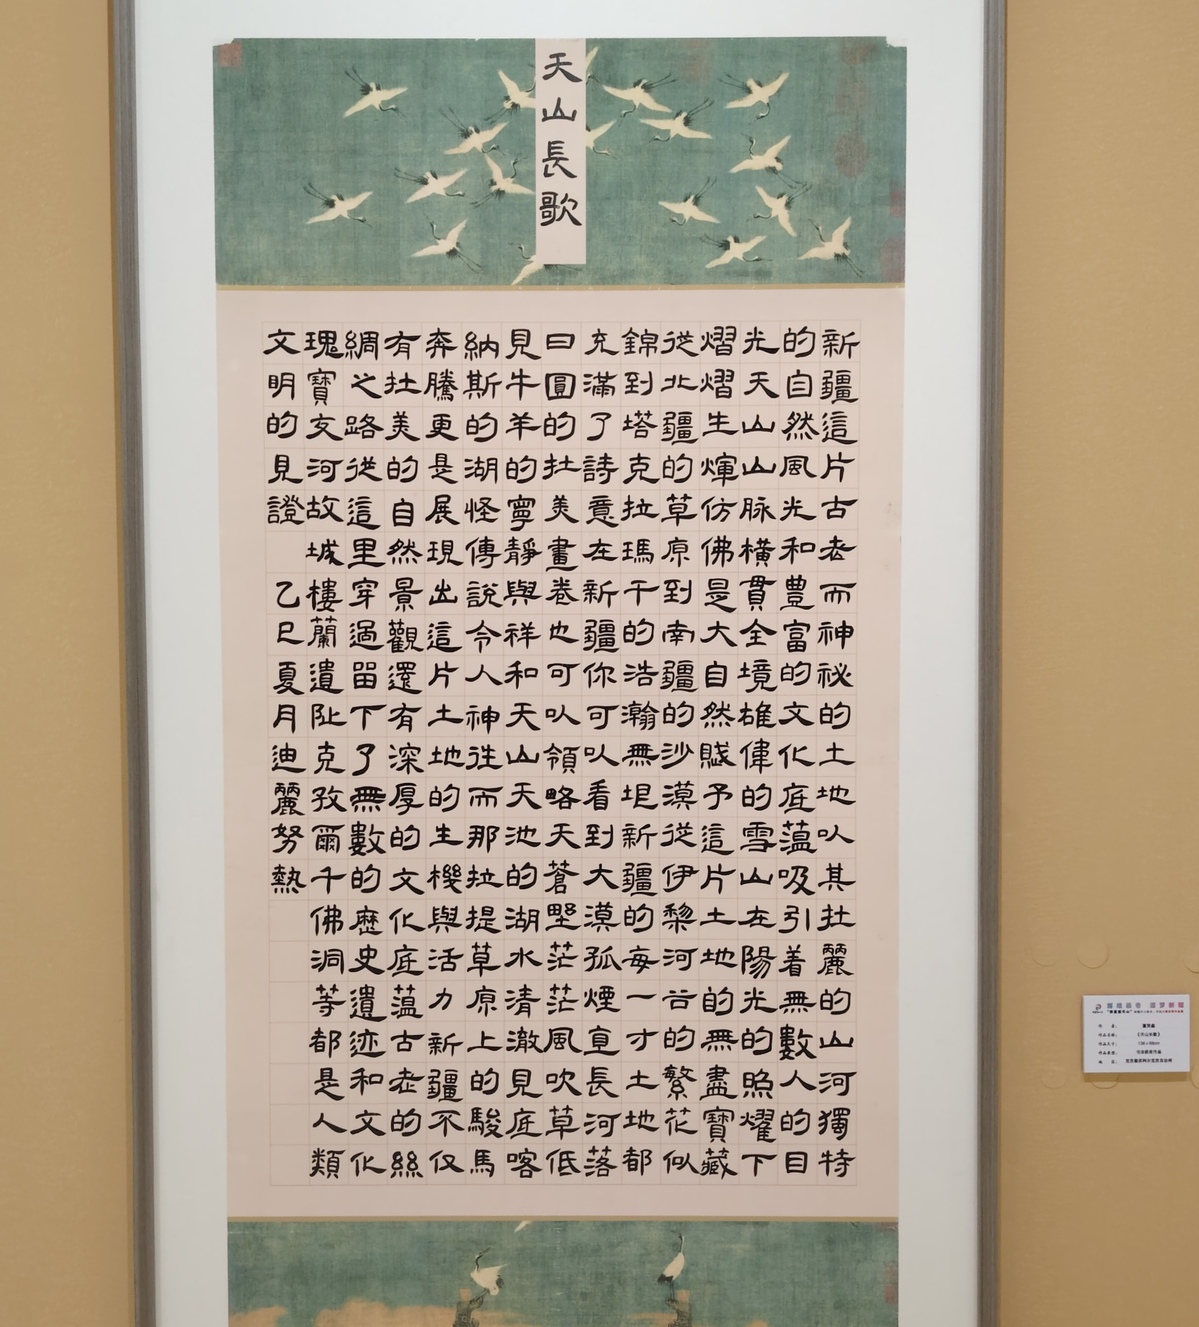 天山長歌
新疆這片古老而神祕的土地以其壯麗的山河獨特
的自然風光和豐富的文化底蘊吸引着無數人的目
光天山山脉橫貫全境雄偉的雪山在陽光的照耀下
熠熠生煇仿佛是大自然賦予這片土地的無盡寶藏
從北疆的草原到南疆的沙漠從伊黎河谷的繁花似
錦到塔克拉瑪干的浩瀚無垠新疆的每一寸土地都
充滿了詩意在新疆你可以看到大漠孤煙直長河落
日圓的壯美畫卷也可以領略天蒼野茫茫風吹草低
見牛羊的寧靜與祥和天山天池的湖水清澈見底喀
納斯的湖怪傳說令人神往而那拉提草原上的駿馬
奔騰更是展現出這片土地的生機與活力新疆不仅
有壯美的自然景觀還有深厚的文化底蘊古老的絲
綢之路從這里穿過留下了無數的歷史遺迹和文化
瑰寶交河故城樓蘭遺址克孜爾千佛洞等都是人類
文明的見證
乙巳夏月迪麗努熱
《天山长歌》